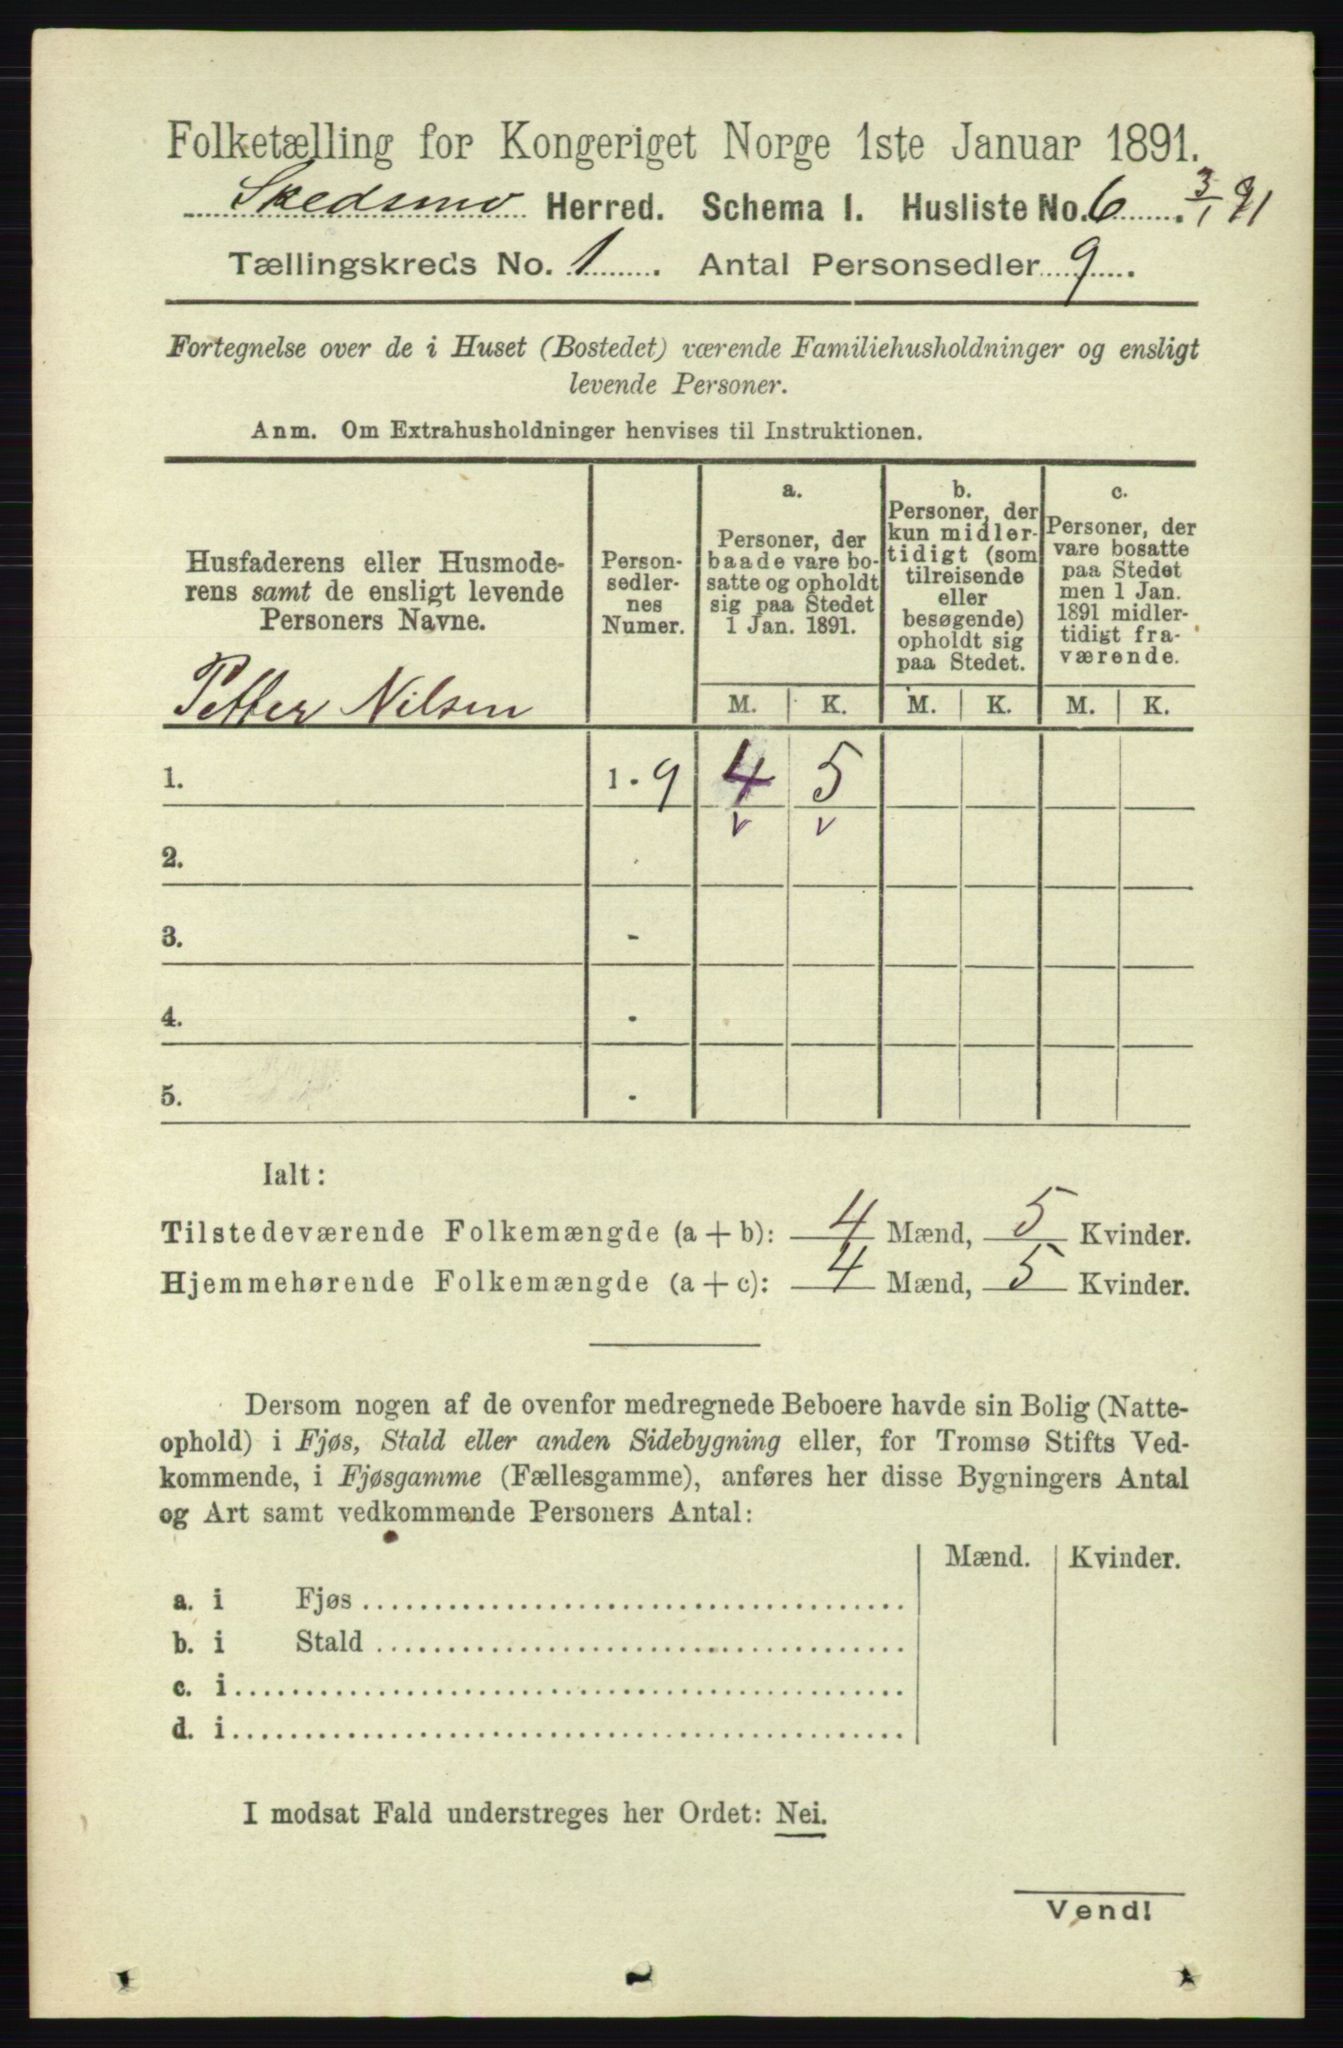 Folketælling for Kongeriget Norge 1ste Januar 1891.
Skedsmo Herred. Schema I. Husliste No. 6. 3/1 91
Tællingskreds No. 1. Antal Personsedler 9.
Fortegnelse over de i Huset (Bostedet) værende Familiehusholdninger og ensligt
levende Personer.
Anm. Om Extrahusholdninger henvises til Instruktionen.
Husfaderens eller Husmode-
rens samt de ensligt levende
Personers Navne.
Person-
sedler-
nes
Numer.
a.
Personer, der
baade vare bo-
satte og opholdt
sig paa Stedet
1 Jan. 1891.
b.
Personer, der
kun midler-
tidigt (som
tilreisende
eller
besøgende)
opholdt sig
paa Stedet.
c.
Personer, der
vare bosatte
paa Stedet
men 1 Jan.
1891 midler-
tidigt fra-
værende.
M. K. M. K. M. K.
Petter Nilsen
1. 1 - 9 4 5
v v
2. -
3. -
4. -
5. -
Ialt:
Tilstedeværende Folkemængde (a + b): 4 Mænd, 5 Kvinder.
Hjemmehørende Folkemængde (a + c): 4 Mænd, 5 Kvinder.
Dersom nogen af de ovenfor medregnede Beboere havde sin Bolig (Natte-
ophold) i Fjøs, Stald eller anden Sidebygning eller, for Tromsø Stifts Ved-
kommende, i Fjøsgamme (Fællesgamme), anføres her disse Bygningers Antal
og Art samt vedkommende Personers Antal:
Mænd. Kvinder.
a. i Fjøs
b. i Stald
c. i
d. i
I modsat Fald understreges her Ordet: Nei.
Vend!